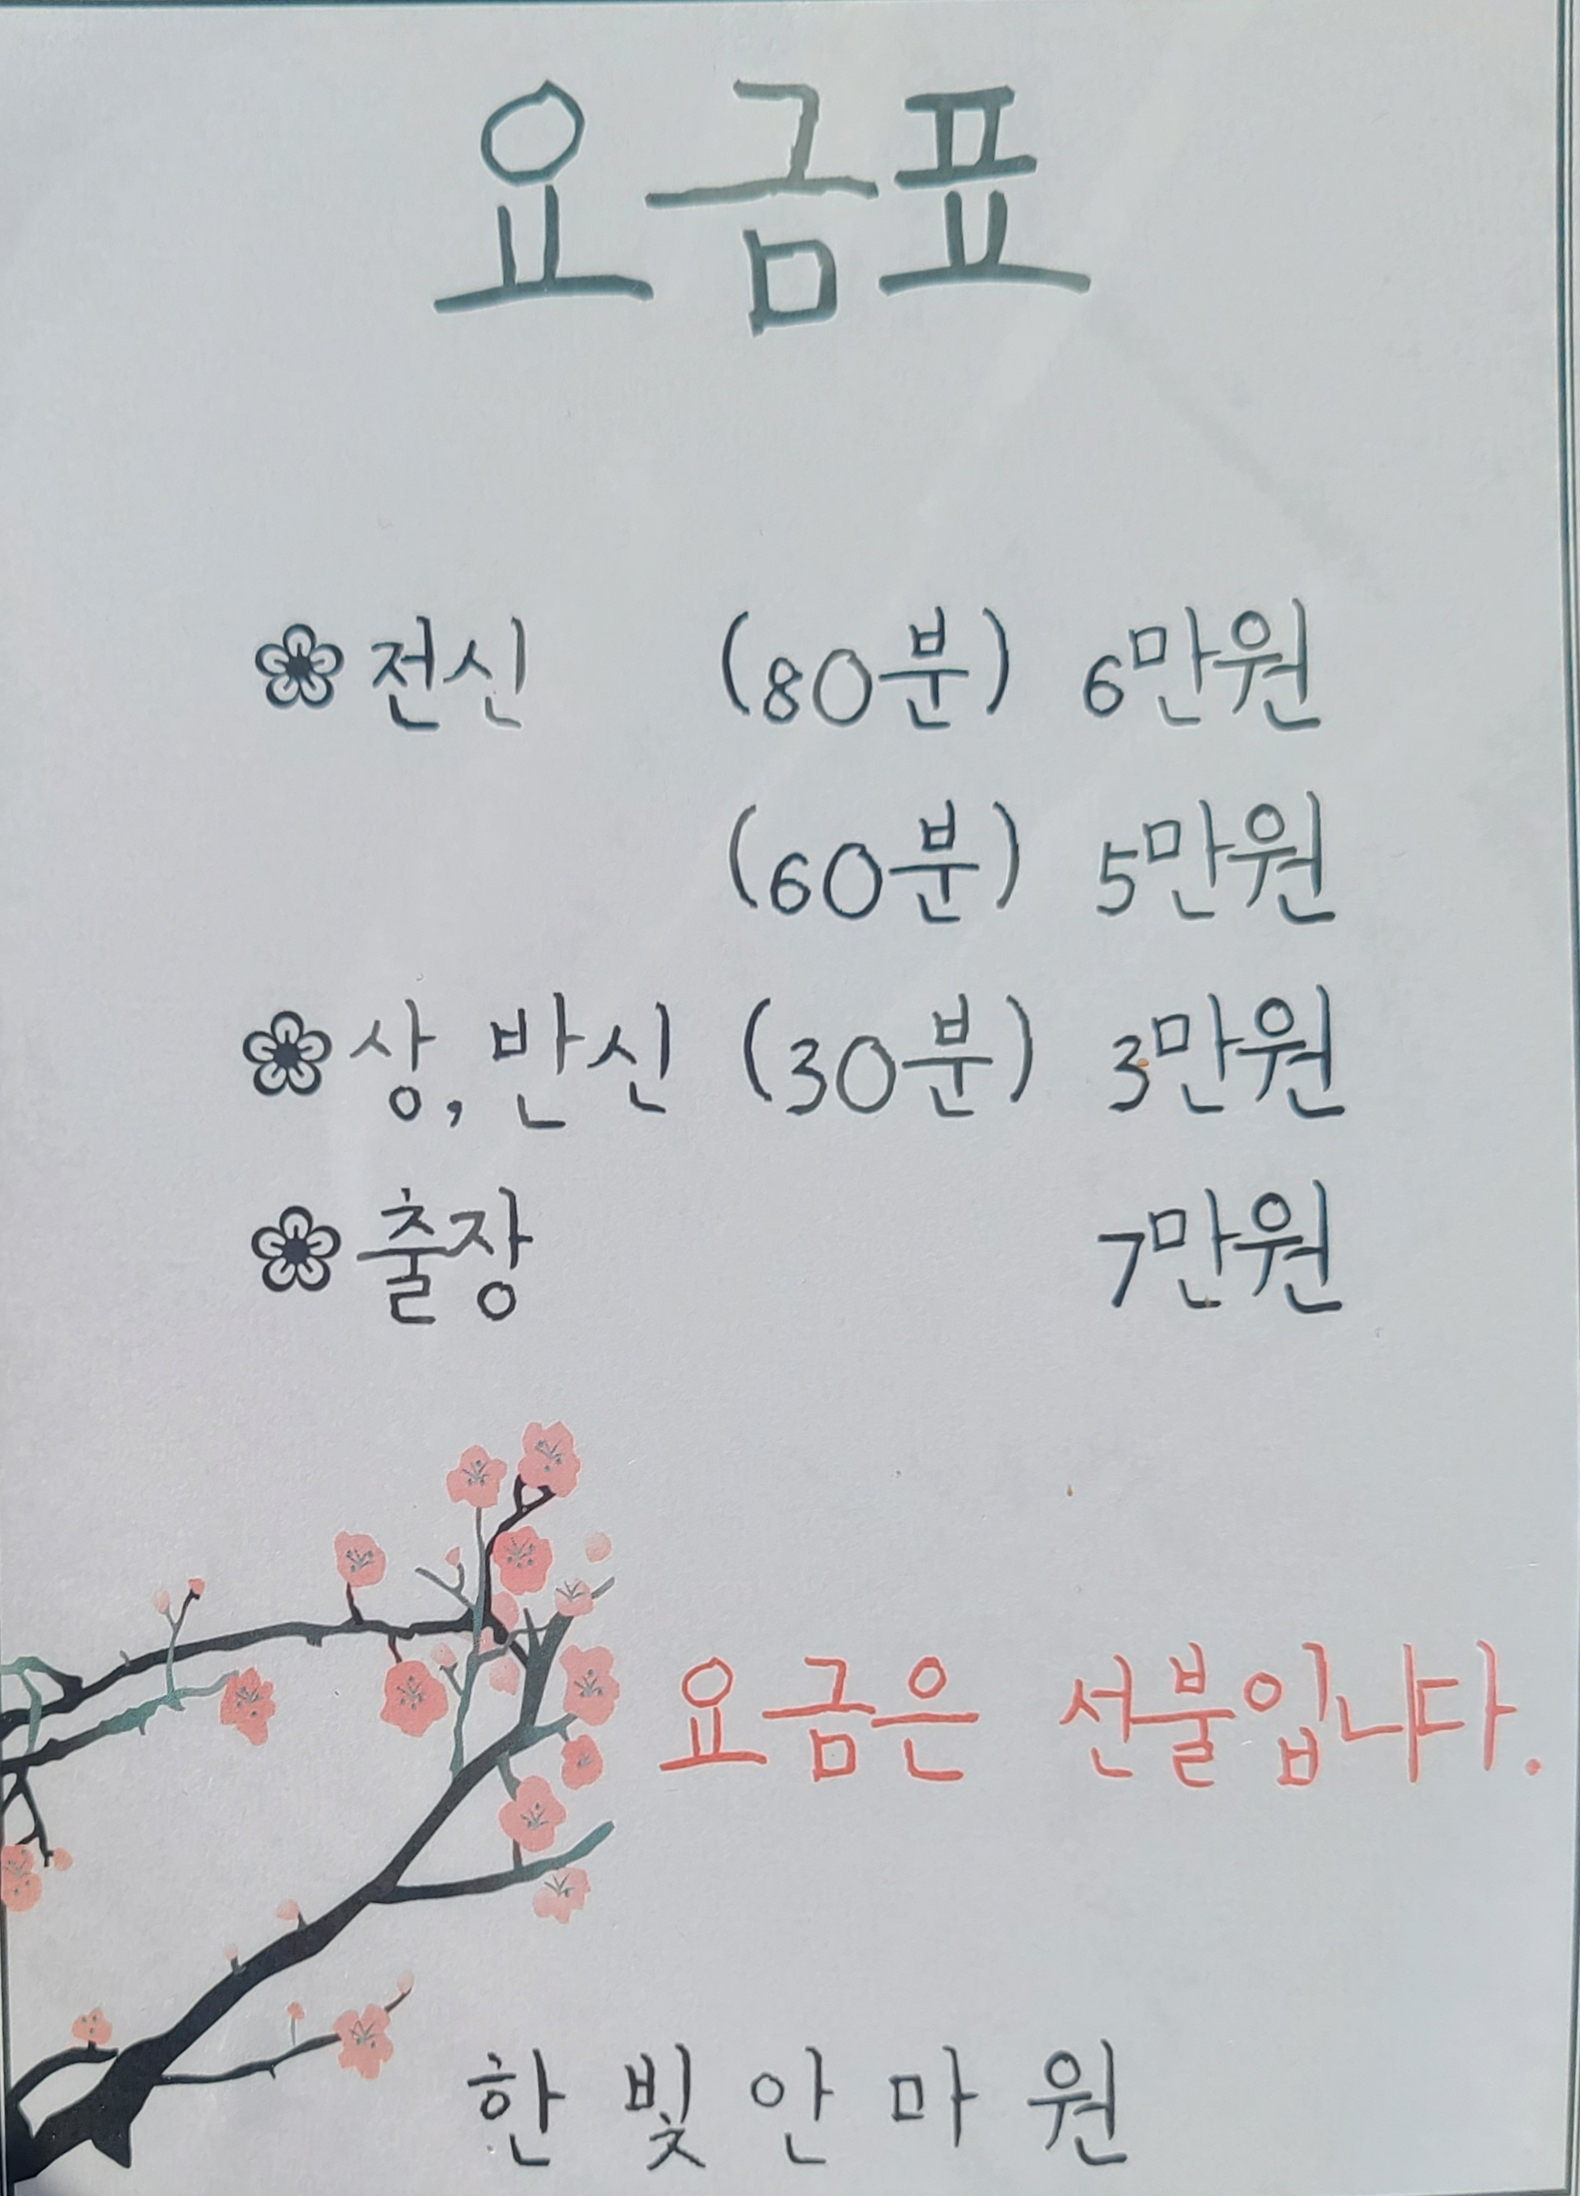 요금표
❀전신 (80분) 6만원
(60분) 5만원
❀상,반신 (30분) 3만원
❀출장 7만원
요금은 선불입니다.
한빛안마원